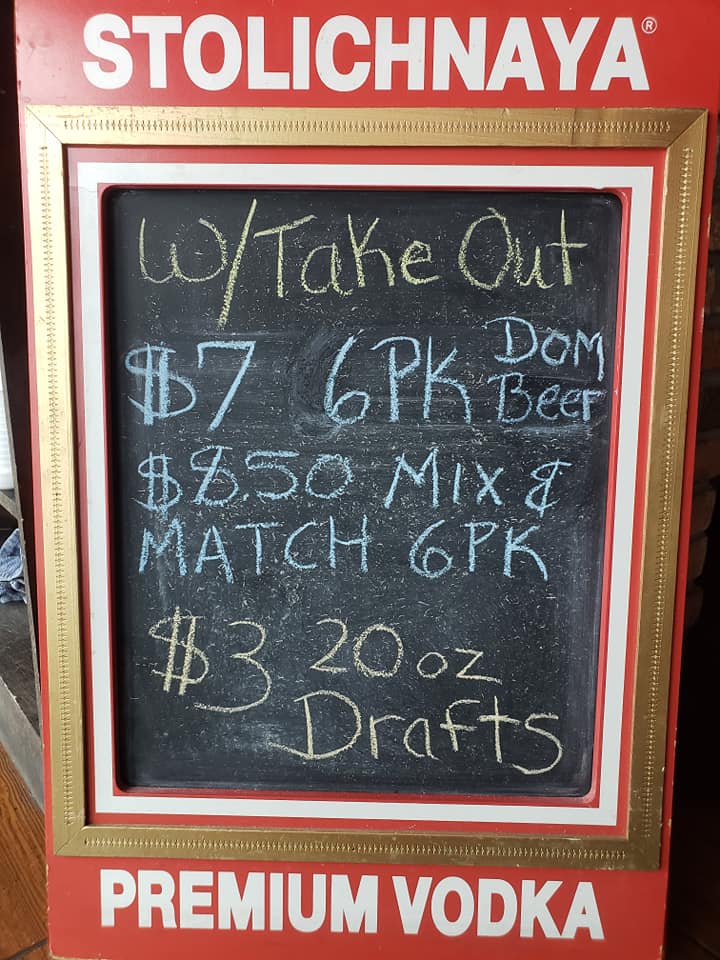 STOLICHNAYA®
W/Take Out
$7 6PK DOM Beer
$8.50 MIX &
MATCH 6PK
$3 20oz
Drafts
PREMIUM VODKA